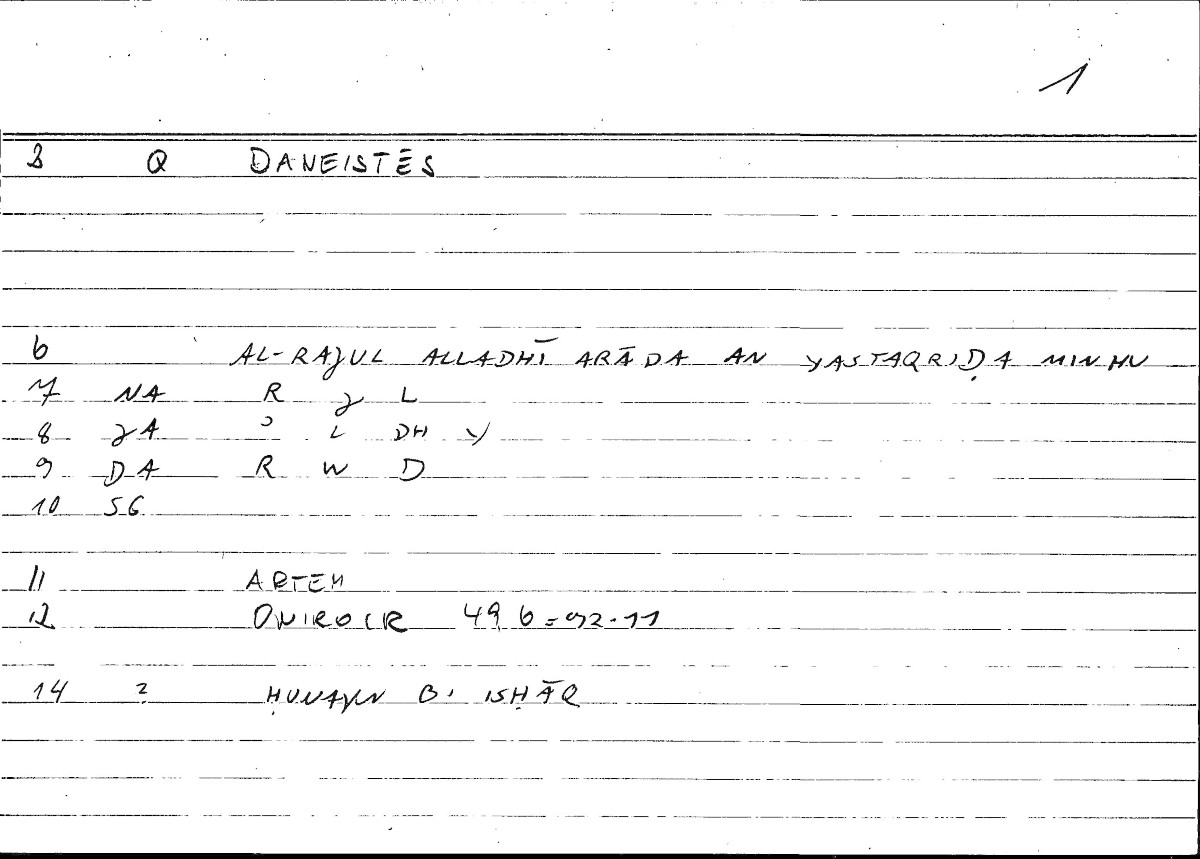 1
3 Q DANEISTĒS
6 AL-RAJUL ALLADHĪ ARĀDA AN YASTAQRIḌA MINHU
7 NA R J L
8 JA ʾ L DH Y
9 DA R W D
10 SG
11 ARTEM
12 ONIROCR 49, 6 = 92.11
14 ? ḤUNAYN B. ISḤĀQ